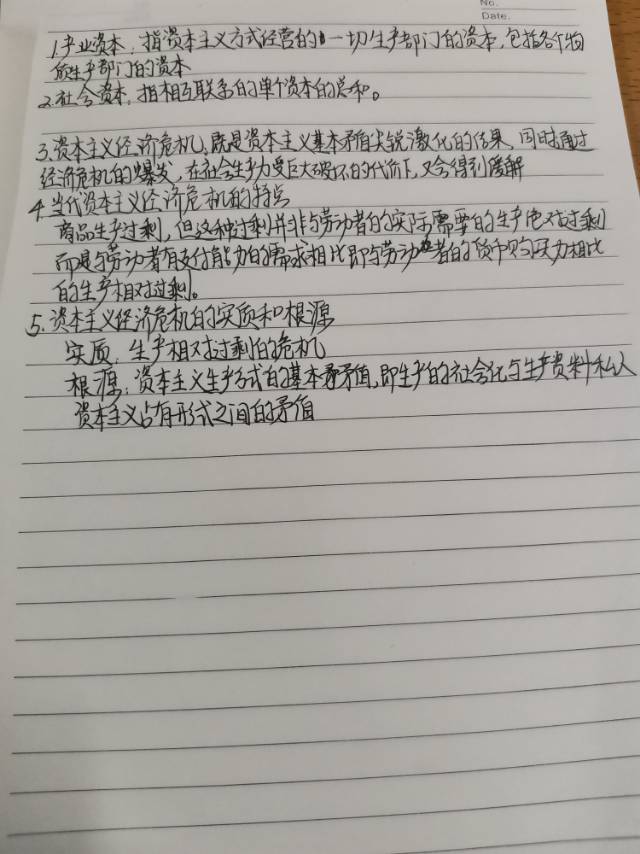 No.
Date.
1.产业资本，指资本主义方式经营的一切生产部门的资本，包括各个物
质生产部门的资本
2.社会资本，指相互联系的单个资本的总和。
3.资本主义经济危机，既是资本主义基本矛盾尖锐激化的结果，同时通过
经济危机的爆发，在社会生产力受巨大破坏的代价下，又会得到缓解
4.当代资本主义经济危机的特点
商品生产过剩，但这种过剩并非与劳动者的实际需要的生产绝对过剩
而是与劳动者有支付能力的需求相比即与劳动者的货币购买力相比
的生产相对过剩。
5.资本主义经济危机的实质和根源
实质：生产相对过剩的危机
根源：资本主义生产方式的基本矛盾，即生产的社会化与生产资料私人
资本主义占有形式之间的矛盾